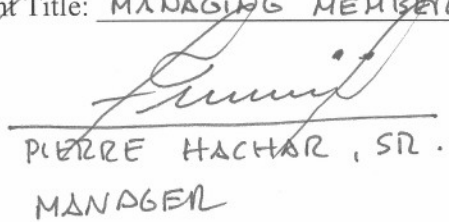 nt Title: MANAGING MEMBER
PIERRE HACHAR, SR.
MANAGER